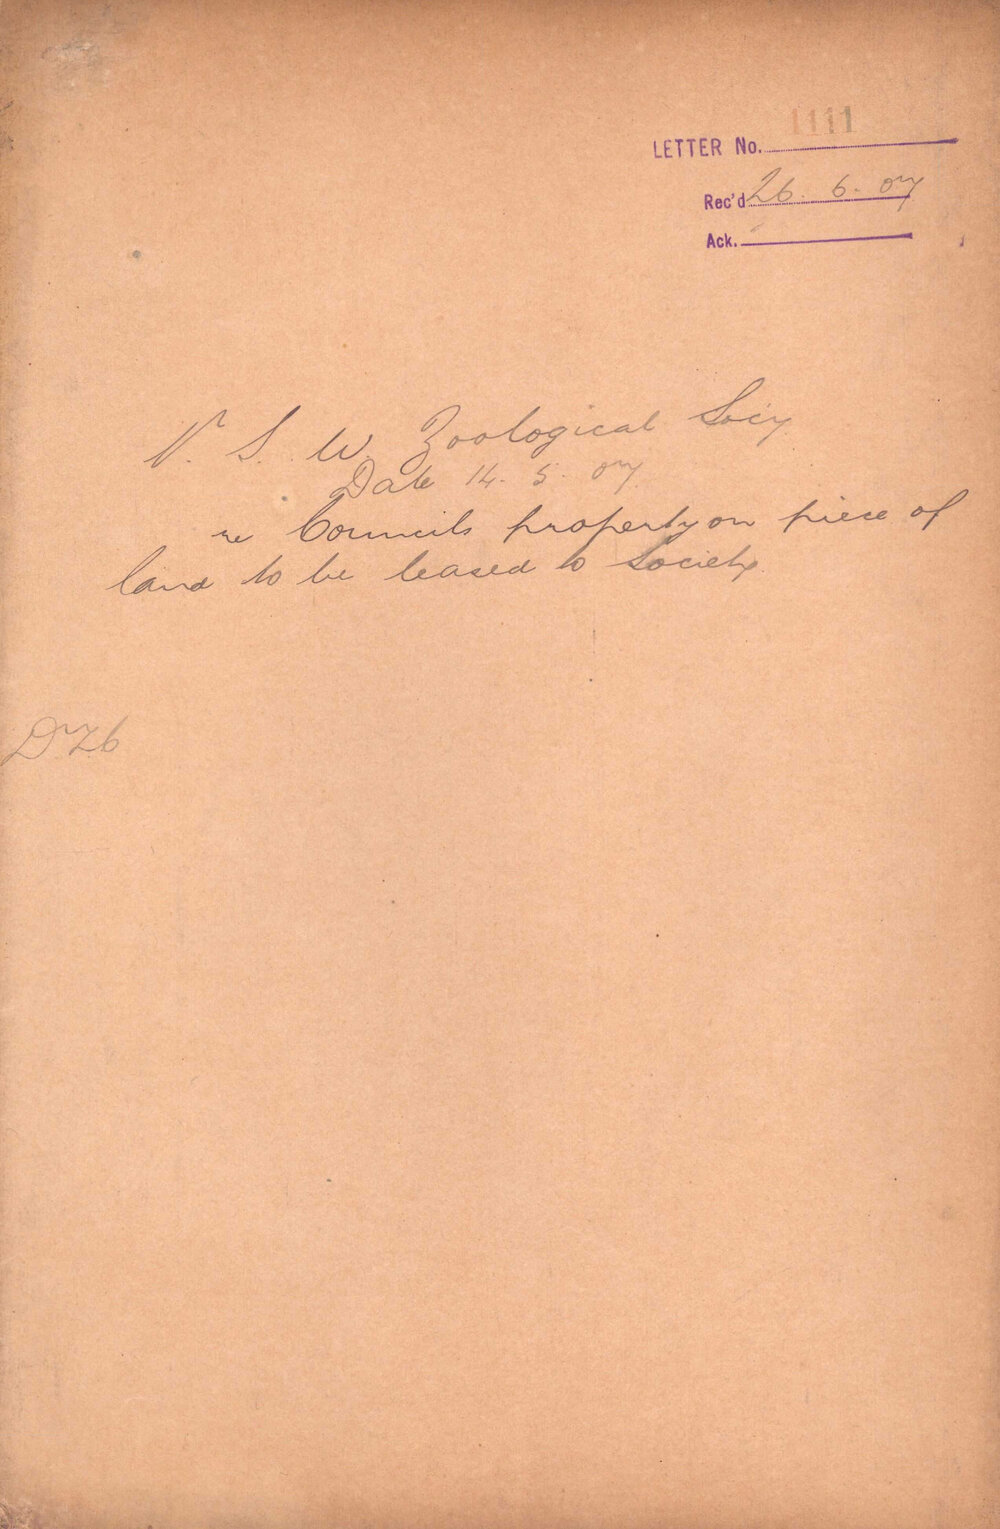 LETTER No. 1111
Rec'd 26. 6. 07
Ack.
N. S. W. Zoological Socy
Date 14. 5. 07
re Councils property on piece of
land to be leased to Society.